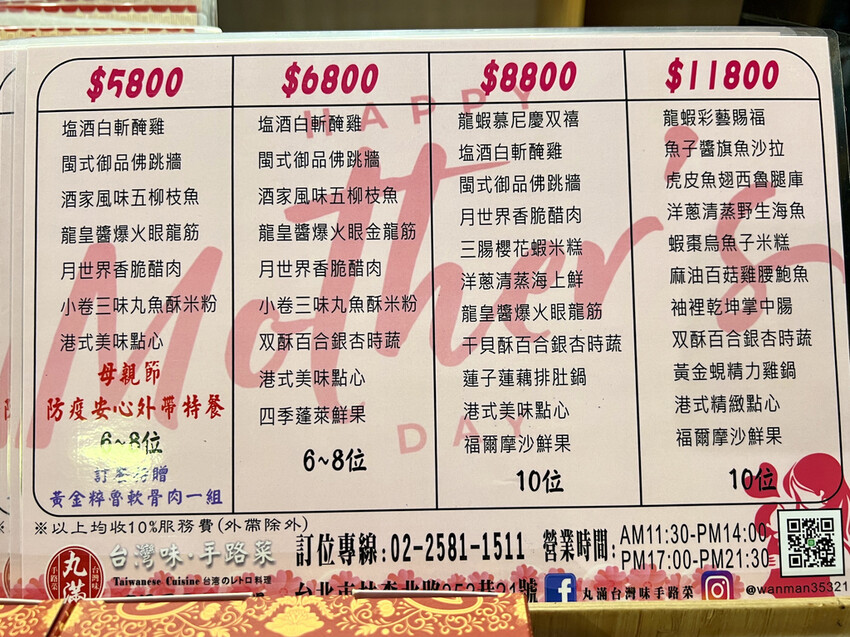 $5800
塩酒白斬醃雞
閩式御品佛跳牆
酒家風味五柳枝魚
龍皇醬爆火眼龍筋
月世界香脆醋肉
小卷三味丸魚酥米粉
港式美味點心
母親節
防疫安心外帶特餐
6~8位
黃金粹魯軟骨肉一組
$6800
塩酒白斬醃雞
閩式御品佛跳牆
酒家風味五柳枝魚
龍皇醬爆火眼金龍筋
月世界香脆醋肉
小卷三味丸魚酥米粉
双酥百合銀杏時蔬
港式美味點心
四季蓬萊鮮果
6~8位
$8800
龍蝦慕尼慶双禧
塩酒白斬醃雞
閩式御品佛跳牆
月世界香脆醋肉
三腸櫻花蝦米糕
洋蔥清蒸海上鮮
龍皇醬爆火眼龍筋
干貝酥百合銀杏時蔬
蓮子蓮藕排肚鍋
港式美味點心
福爾摩沙鮮果
10位
$11800
龍蝦彩藝賜福
魚子醬旗魚沙拉
虎皮魚翅西魯腿庫
洋蔥清蒸野生海魚
蝦棗烏魚子米糕
麻油百菇雞腰鮑魚
袖裡乾坤掌中腸
双酥百合銀杏時蔬
黃金蜆精力雞鍋
港式精緻點心
福爾摩沙鮮果
10位
HAPPY
Mother's
DAY
※以上均收10%服務費(外帶除外)
丸滿
台灣味
手路菜
台灣味·手路菜
Taiwanese Cuisine 台湾のレトロ料理
訂位專線:02-2581-1511
營業時間:
AM11:30-PM14:00
PM17:00-PM21:30
丸滿台灣味手路菜
@wanman35321